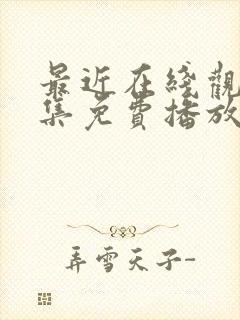 最近在綫觀
集免費播放
弄雪天子-